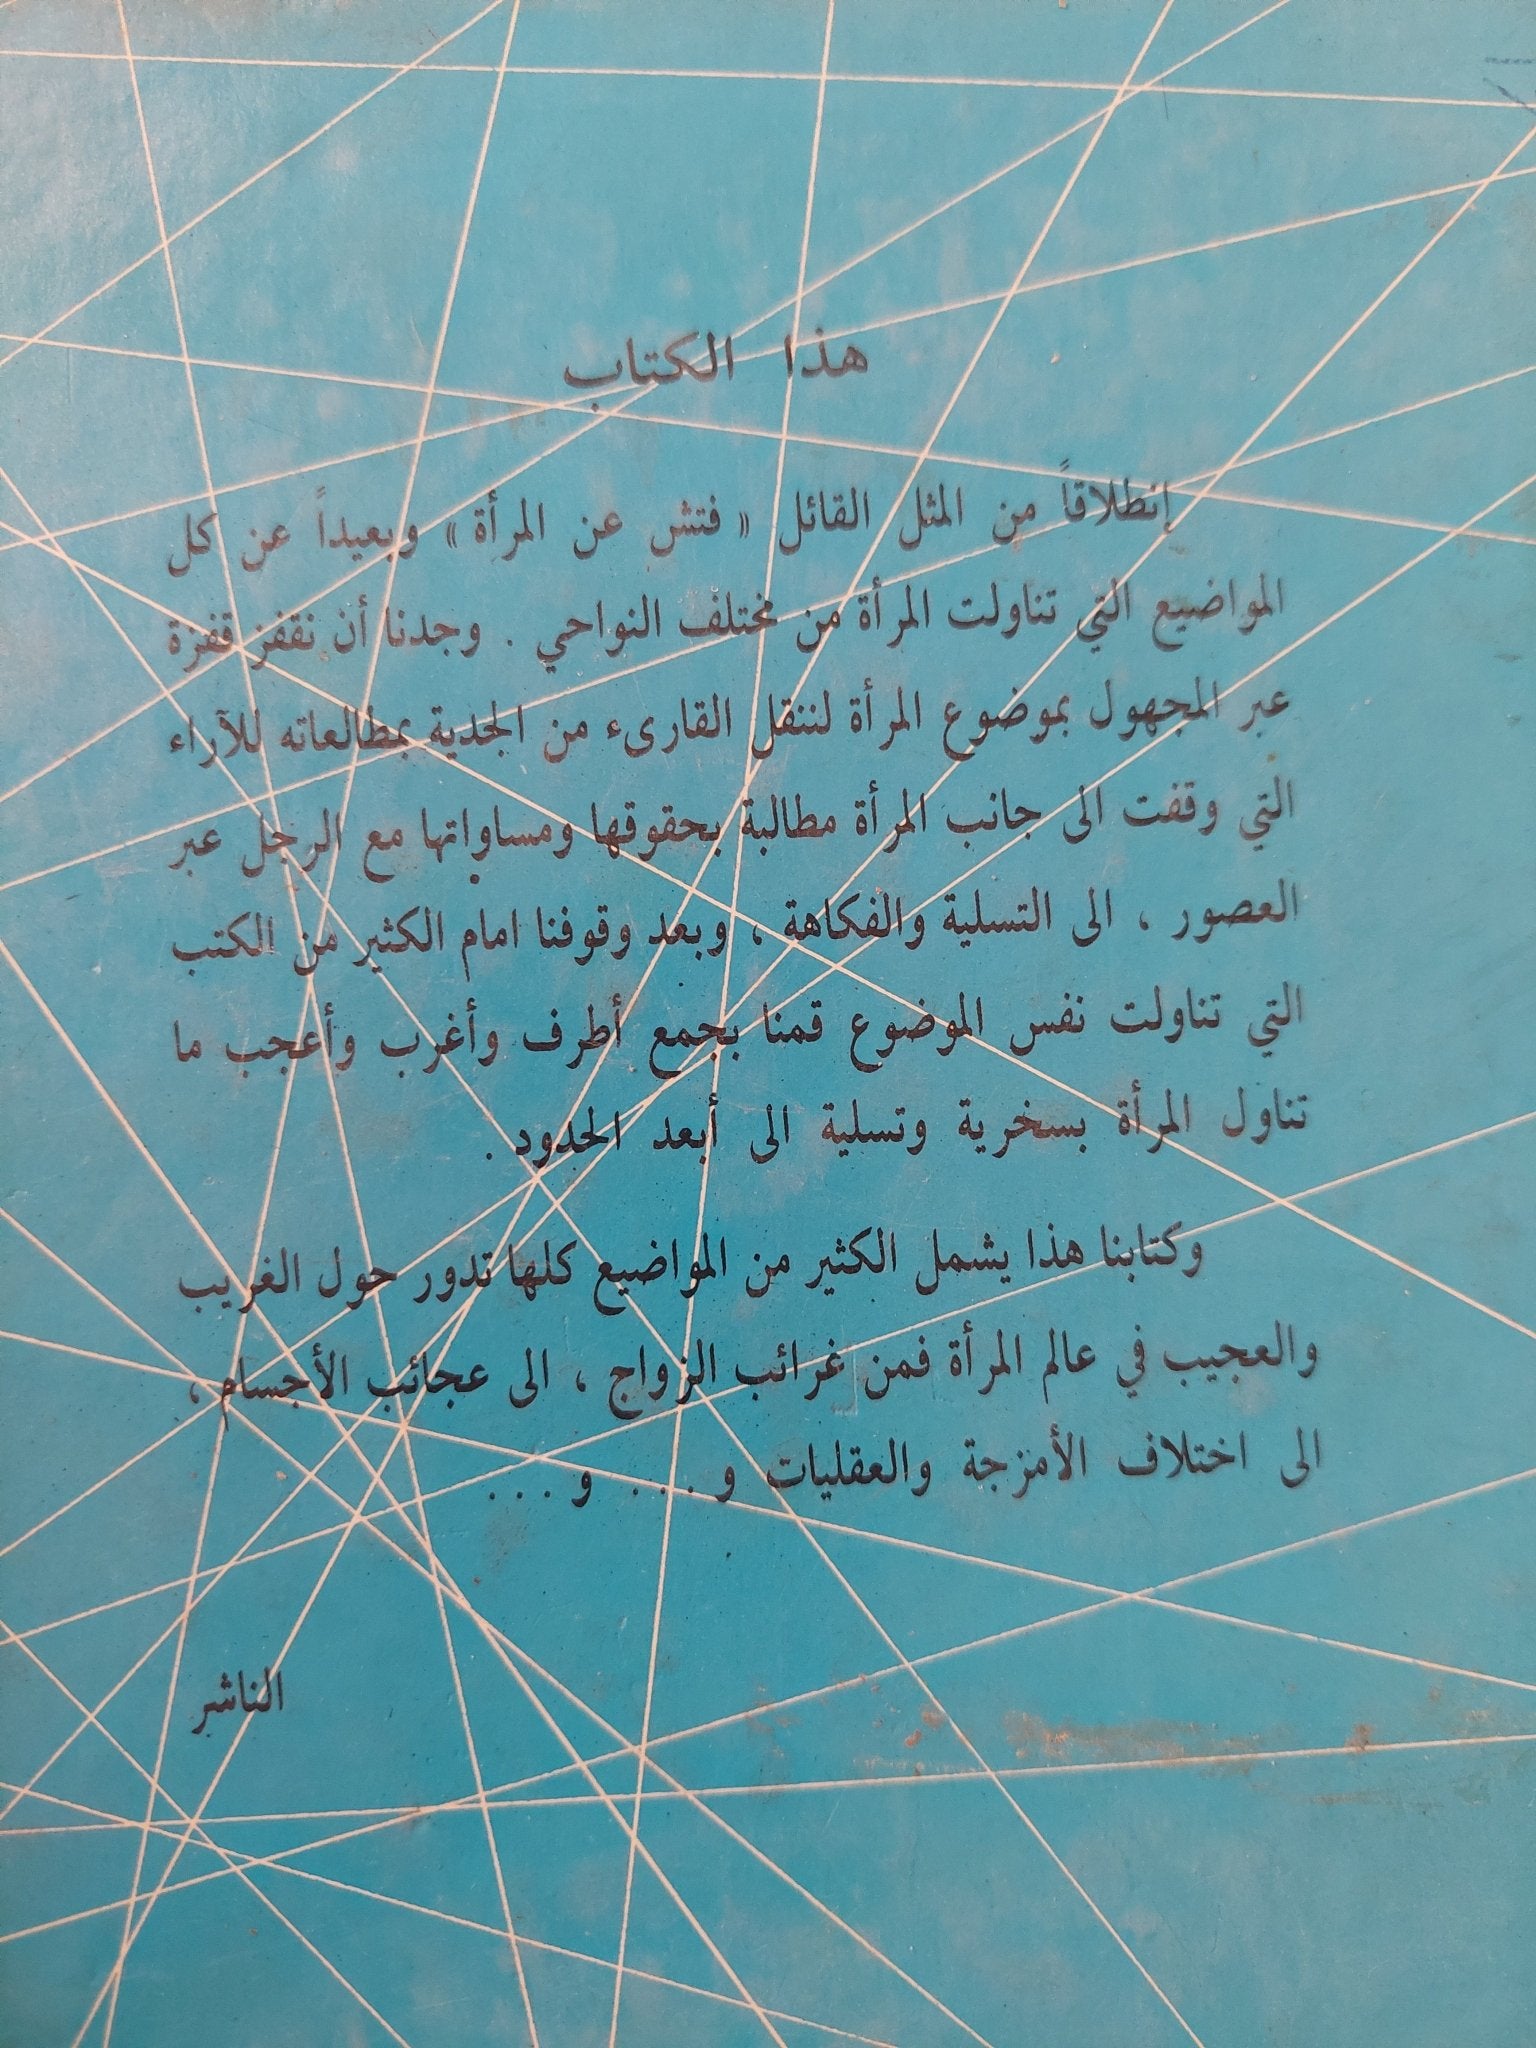 هذا الكتاب
إنطلاقاً من المثل القائل « فتش عن المرأة » وبعيداً عن كل
المواضيع التي تناولت المرأة من مختلف النواحي . وجدنا أن نقفز قفزة
عبر المجهول بموضوع المرأة لننقل القارىء من الجدية بمطالعاته للآراء
التي وقفت الى جانب المرأة مطالبة بحقوقها ومساواتها مع الرجل عبر
العصور ، الى التسلية والفكاهة ، وبعد وقوفنا امام الكثير من الكتب
التي تناولت نفس الموضوع قمنا بجمع أطرف وأغرب وأعجب ما
تناول المرأة بسخرية وتسلية الى أبعد الحدود .
وكتابنا هذا يشمل الكثير من المواضيع كلها تدور حول الغريب
والعجيب في عالم المرأة فمن غرائب الزواج ، الى عجائب الأجسام ،
الى اختلاف الأمزجة والعقليات و . . . و . . .
الناشر